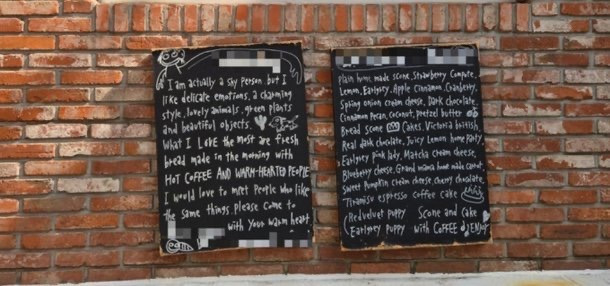 I am actually a shy person. but I
like delicate emotions, a charming
style, lovely animals, green plants
and beautiful objects.
What I LOVE the most are fresh
bread made in the morning with
HOT COFFEE AND WARM-HEARTED PEOPLE
I would love to meet people who like
the same things. Please come to
with your warm heart
Plain home made scone, Strawberry Compute,
Lemon, Earlgrey, Apple Cinnamon, Cranberry,
Spring onion cream cheese, Dark chocolate,
Cinnamon Pecan, Coconut, Pretzel butter
Bread Scone Cakes, Victoria british,
Real dark chocolate, Juicy Lemon home party
Earlgrey pink lady, Matcha Cream cheese,
Blueberry cheese, Grand mama home made carrot
Sweet Pumpkin cream cheese, cherry chocolate,
Tiramisu espresso coffee cake
(Redvelvet puppy Scone and Cake
(Earlgrey puppy with COFFEE ENJOY